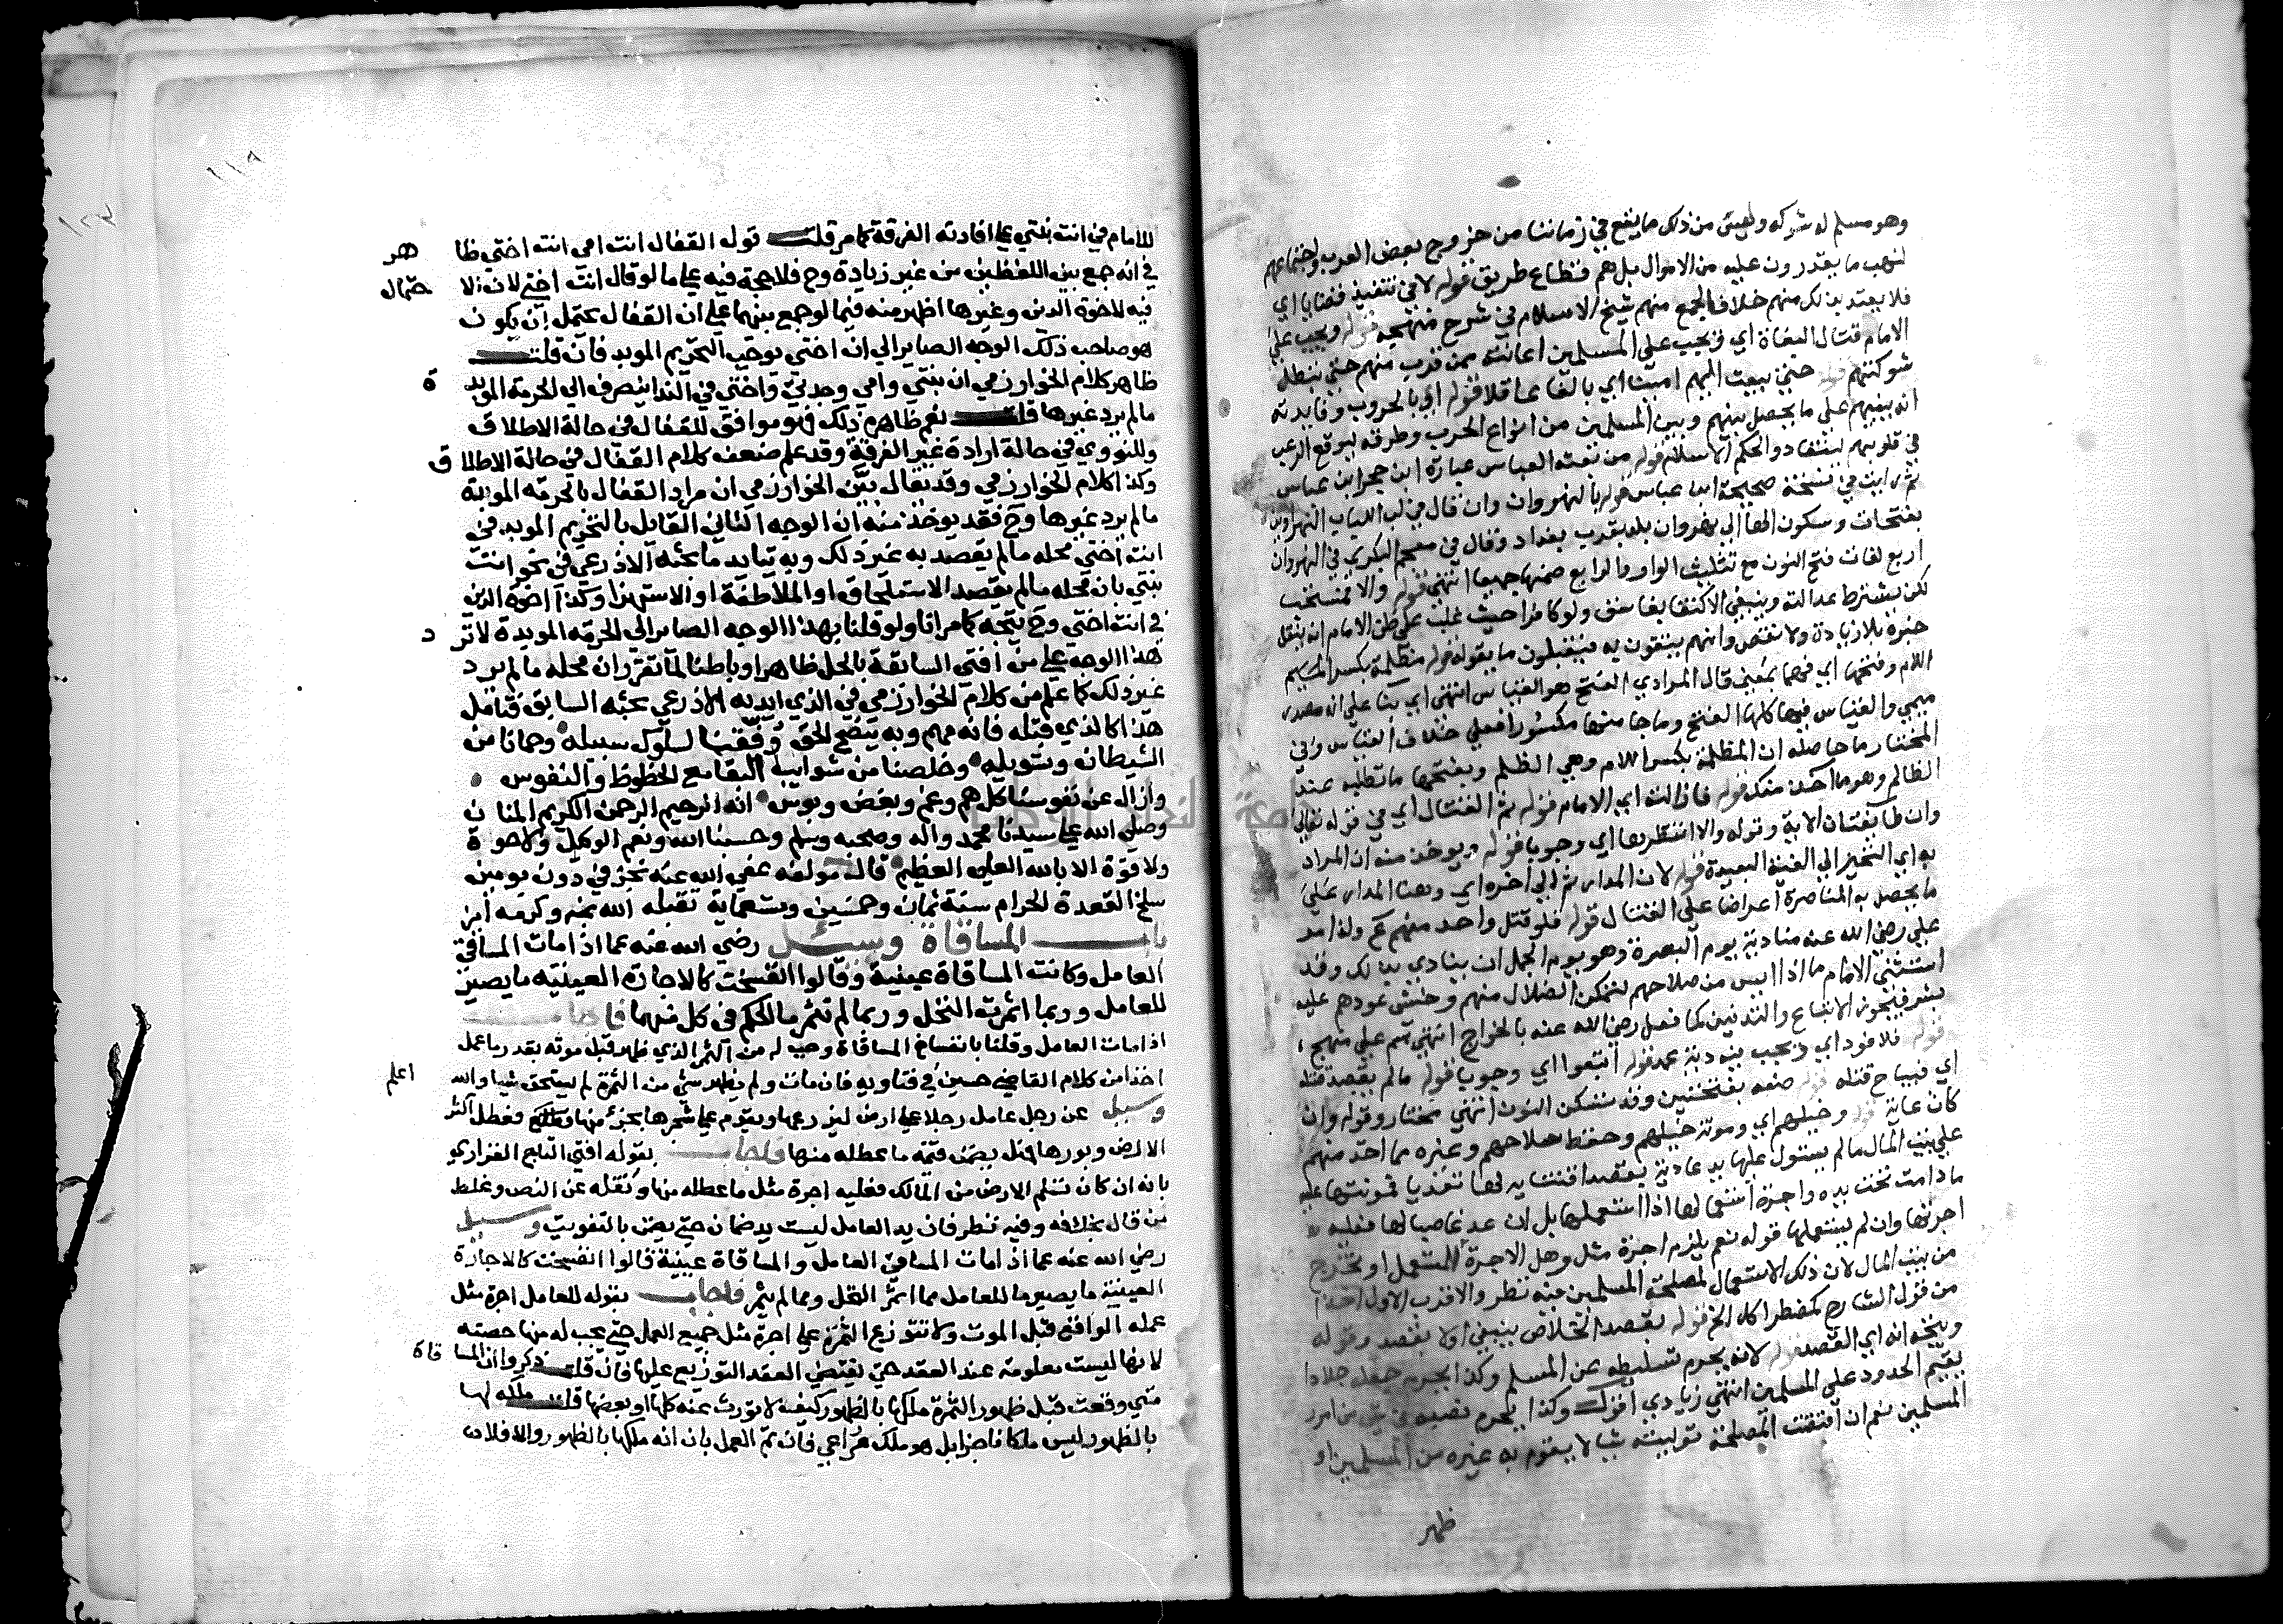 وهو مسلم له شركه وليس من ذلك ما يقع في زماننا من خروج بعض العرب واجتماعهم
لنهب ما يقدرون عليه من الاموال بل هم قطاع طريق قوله لا في تنفيذ قضايا اي
فلا يعتد بذلك منهم خلافا لجمع منهم شيخ الاسلام في شرح منهجه قوله ويجب على
الامام قتال البغاة اي ويجب على المسلمين اعانته ممن قرب منهم حتى تبطل
شوكتهم قوله حتى يبعث اليهم امينا اي بالغا عاقلا قوله اي بالحروب وفايدته
انه ينبههم على ما يحصل بينهم وبين المسلمين من انواع الحرب وطرقه ليوقع الرعب
في قلوبهم لينقادوا لحكم الاسلام قوله من بعثه العباس عبارة ابن حجر ابن عباس
ثم رايت في نسخة صحيحة ابن عباس قوله بالنهروان وان قال في لب اللباب النهرواني
بفتحات وسكون الهاء الى نهروان بلد بقرب بغداد وقال في معجم البكري في النهروان
اربع لغات فتح النون مع تثليث الراء والرابع ضمها جميعا انتهى قوله والا فمستحب
لكن يشترط عدالته وينبغي الاكتفا بفاسق ولو كافرا حيث غلب على ظن الامام انه ينقل
خبره بلا زيادة ولا نقص وانهم يثقون به فيقبلون ما يقوله قوله مظلمة بكسر الميم
اللام وفتحها اي فهما بمعنى قال المرادي الفتح هو القياس انتهى اي بنا على انه مصدر
ميمي والقياس فيها كلها الفتح وما جا منها مكسورا فعلى خلاف القياس وفي
المختار ما حاصله ان المظلمة بكسر اللام وهي الظلم وبفتحها ما تطلبه عند
الظالم وهو ما اخذ منك قوله فاذا انه اي الامام قوله ثم القتال اي في قوله تعالى
وان طايفتان الاية وقوله والا انتظر بها اي وجوبا قوله ويوخذ منه ان المراد
به اي التحيز الى الفئة البعيدة قوله لان المدار ثم الى اخره اي وهنا المدار على
ما يحصل به المناصرة اعراضا على القتال قوله فلو قتل واحد منهم كم ولذا امر
علي رضي الله عنه مناديه يوم البصرة وهو يوم الجمل ان ينادي بذلك وقد
استثنى الامام ما اذا ايس من صلاحهم لتمكن الضلال منهم وخشي عودهم عليه
بشر فيجوز الاتباع والتدفيف كما فعل رضي الله عنه بالخوارج انتهى سم على منهج
قوله فلا قود اي ويجب فيه دية عمد قوله اتبعوا اي وجوبا قوله ما لم يقصد قتله
اي فيباح قتاله قوله منعه بفتحتين وقد تسكن النون انتهى مختار وقوله وان
كان عاية قوله وخيلهم اي ومونة خيلهم وحفظ سلاحهم وغيره مما اخذ منهم
على بيت المال ما لم يستول عليها يد عادية بقصد اقتنائه لها تعديا فمونتها عليه
ما دامت تحت يده واجرة استعمالها اذا استعملها بل ان عد غاصبا لها فعليه
اجرتها وان لم يستعملها قوله نعم يلزم اجرة مثل وهل الاجرة المستعمل او تخرج
من بيت المال لان ذلك الاستعمال لمصلحة المسلمين فيه نظر والاقرب الاول اخذا
من قول الشارح كمضطر اكل الخ قوله بقصد الخلاص ينبغي اولا بقصد وقوله
ويتجه انه اي القصد قوله لانه يحرم تسليطه على المسلم وكذا يحرم جعله جلادا
يقيم الحدود على المسلمين انتهى زيادي اقول وكذا يحرم نصبه في شي من امور
المسلمين نعم ان اقتضت المصلحة توليته شيا لا يقوم به غيره من المسلمين او
ظهر
١١٨
للامام في انت بنتي بما افادته الفرقة كما مر قلت قول القفال انت امي انت اختي ظا هر
في انه جمع بين اللفظين من غير زيادة وح فلا حجة فيه على ما لو قال انت اختي لان الا حتمال
فيه لاخوة الدين وغيرها اظهر منه فيما لو جمع بينهما على ان القفال يحتمل ان يكون
هو صاحب ذلك الوجه الصاير الى ان اختي يوجب التحريم الموبد فان قلت
ظاهر كلام الخوارزمي ان بنتي وامي وجدتي واختي في الندا ينصرف الى الحرمة الموبد ة
ما لم يرد غيرها قلت نعم ظاهره ذلك فهو موافق للقفال في حالة الاطلاق
وللنووي في حالة ارادة غير الفرقة وقد علم ضعف كلام القفال في حالة الاطلا ق
وكذا كلام الخوارزمي وقد يقال بين الخوارزمي ان مراد القفال بالحرمه الموبدة
ما لم يرد غيرها وح فقد يوخذ منه ان الوجه الثاني القايل بالتحريم الموبد في
انت اختي محله ما لم يقصد به غير ذلك وبه يتايد ما بحثه الاذرعي في نحو انت
بنتي بان محله ما لم يقصد الاستلحاق او الملاطفة او الاستهزا وكذا اخوة الدين
في انت اختي وح يتجه كما مر انا ولو قلنا بهذا الوجه الصاير الى الحرمه الموبدة لا تر د
هذا الوجه على من افتى السابقة بالحل ظاهرا وباطنا لما تقرر ان محله ما لم يرد
غير ذلك كما علم من كلام الخوارزمي في الذي ايد به الاذرعي بحثه السابق فتامل
هذا كالذي قبله فانه مهم وبه يتضح الحق وفقنا لسلوك سبيله وحمانا من
الشيطان وتسويله وخلصنا من شوايب القامع الحظوظ والنفوس
وازال عن نفوسنا كل هم وغم وبغض وبوس انه الرحيم الرحمن الكريم المنان
وصلى الله على سيدنا محمد واله وصحبه وسلم وحسبنا الله ونعم الوكيل ولا حو ة
ولا قوة الا بالله العلي العظيم قال مولفه عفى الله عنه نجز في دون يومين
سلخ القعدة الحرام سنة ثمان وخمسين وتسعماية تقبله الله بمنه وكرمه امين
باب المساقاة وسئل رضي الله عنه عما اذا مات المساقى
العامل وكانت المساقاة عينية وقالوا انفسخت كالاجارة العينيه ما يصير
للعامل وربما اثمرت النخل وربما لم تثمر ما الحكم في كل منهما فاجاب
اذا مات العامل وقلنا بانفساخ المساقاة وجب له من الثمر الذي ظهر قبل موته بقدر ما عمل
اخذا من كلام القاضي حسين في فتاويه فان مات ولم يظهر شي من الثمرة لم يستحق شيا والله اعلم
وسيل عن رجل عامل رجلا على ارض ليزرعها ويقوم على شجرها بجزء منها فعطل اكثر
الارض وبورها فهل يضمن قيمة ما عطله منها فاجاب بقوله افتى التاج الفزاري
بانه ان كان تسلم الارض من المالك فعليه اجرة مثل ما عطله منها ونقله عن النص وغلط
من قال بخلافه وفيه نظر فان يد العامل ليست يد ضمان حتى يضمن بالتفويت وسيل
رضي الله عنه عما اذا مات المساقى العامل والمساقاة عينية قالوا انفسخت كالاجارة
العينية ما يصير ما للعامل مما اثمر النخل ومما لم يثمر فاجاب بقوله للعامل اجرة مثل
عمله الواقع قبل الموت ولا تتوزع الثمرة على اجرة مثل جميع العمل حتى يجب له منها حصته
لانها ليست معلومة عند العقد حتى يقتضي العقد التوزيع عليها فان قلت ذكروا ان المسا قاة
متى وقعت قبل ظهور الثمرة ملكها بالظهور كيف لا تورث عنه كلها او بعضها قلت ملكه لها
بالظهور ليس ملكا ناجزا بل هو ملك مراعى فان تم العمل بان انه ملكها بالظهور والا فلان